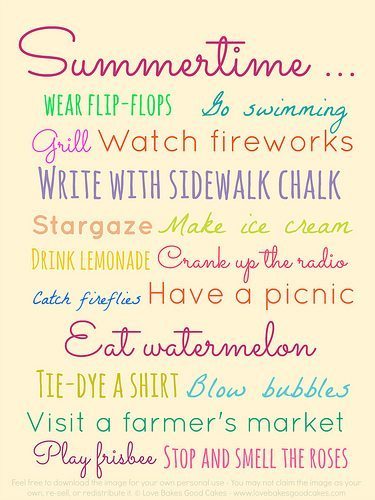 Summertime ...
WEAR FLIP-FLOPS Go swimming
Grill Watch fireworks
WRITE WITH SIDEWALK CHALK
Stargaze Make ice cream
DRINK LEMONADE Crank up the radio
Catch fireflies Have a picnic
Eat watermelon
TIE-DYE A SHIRT Blow bubbles
Visit a farmer's market
Play frisbee STOP AND SMELL THE ROSES
Feel free to download the image for your own personal use - You may not claim the image as your
own, re-sell, or redistribute it. © Love Bakes Good Cakes - www.lovebakesgoodcakes.com